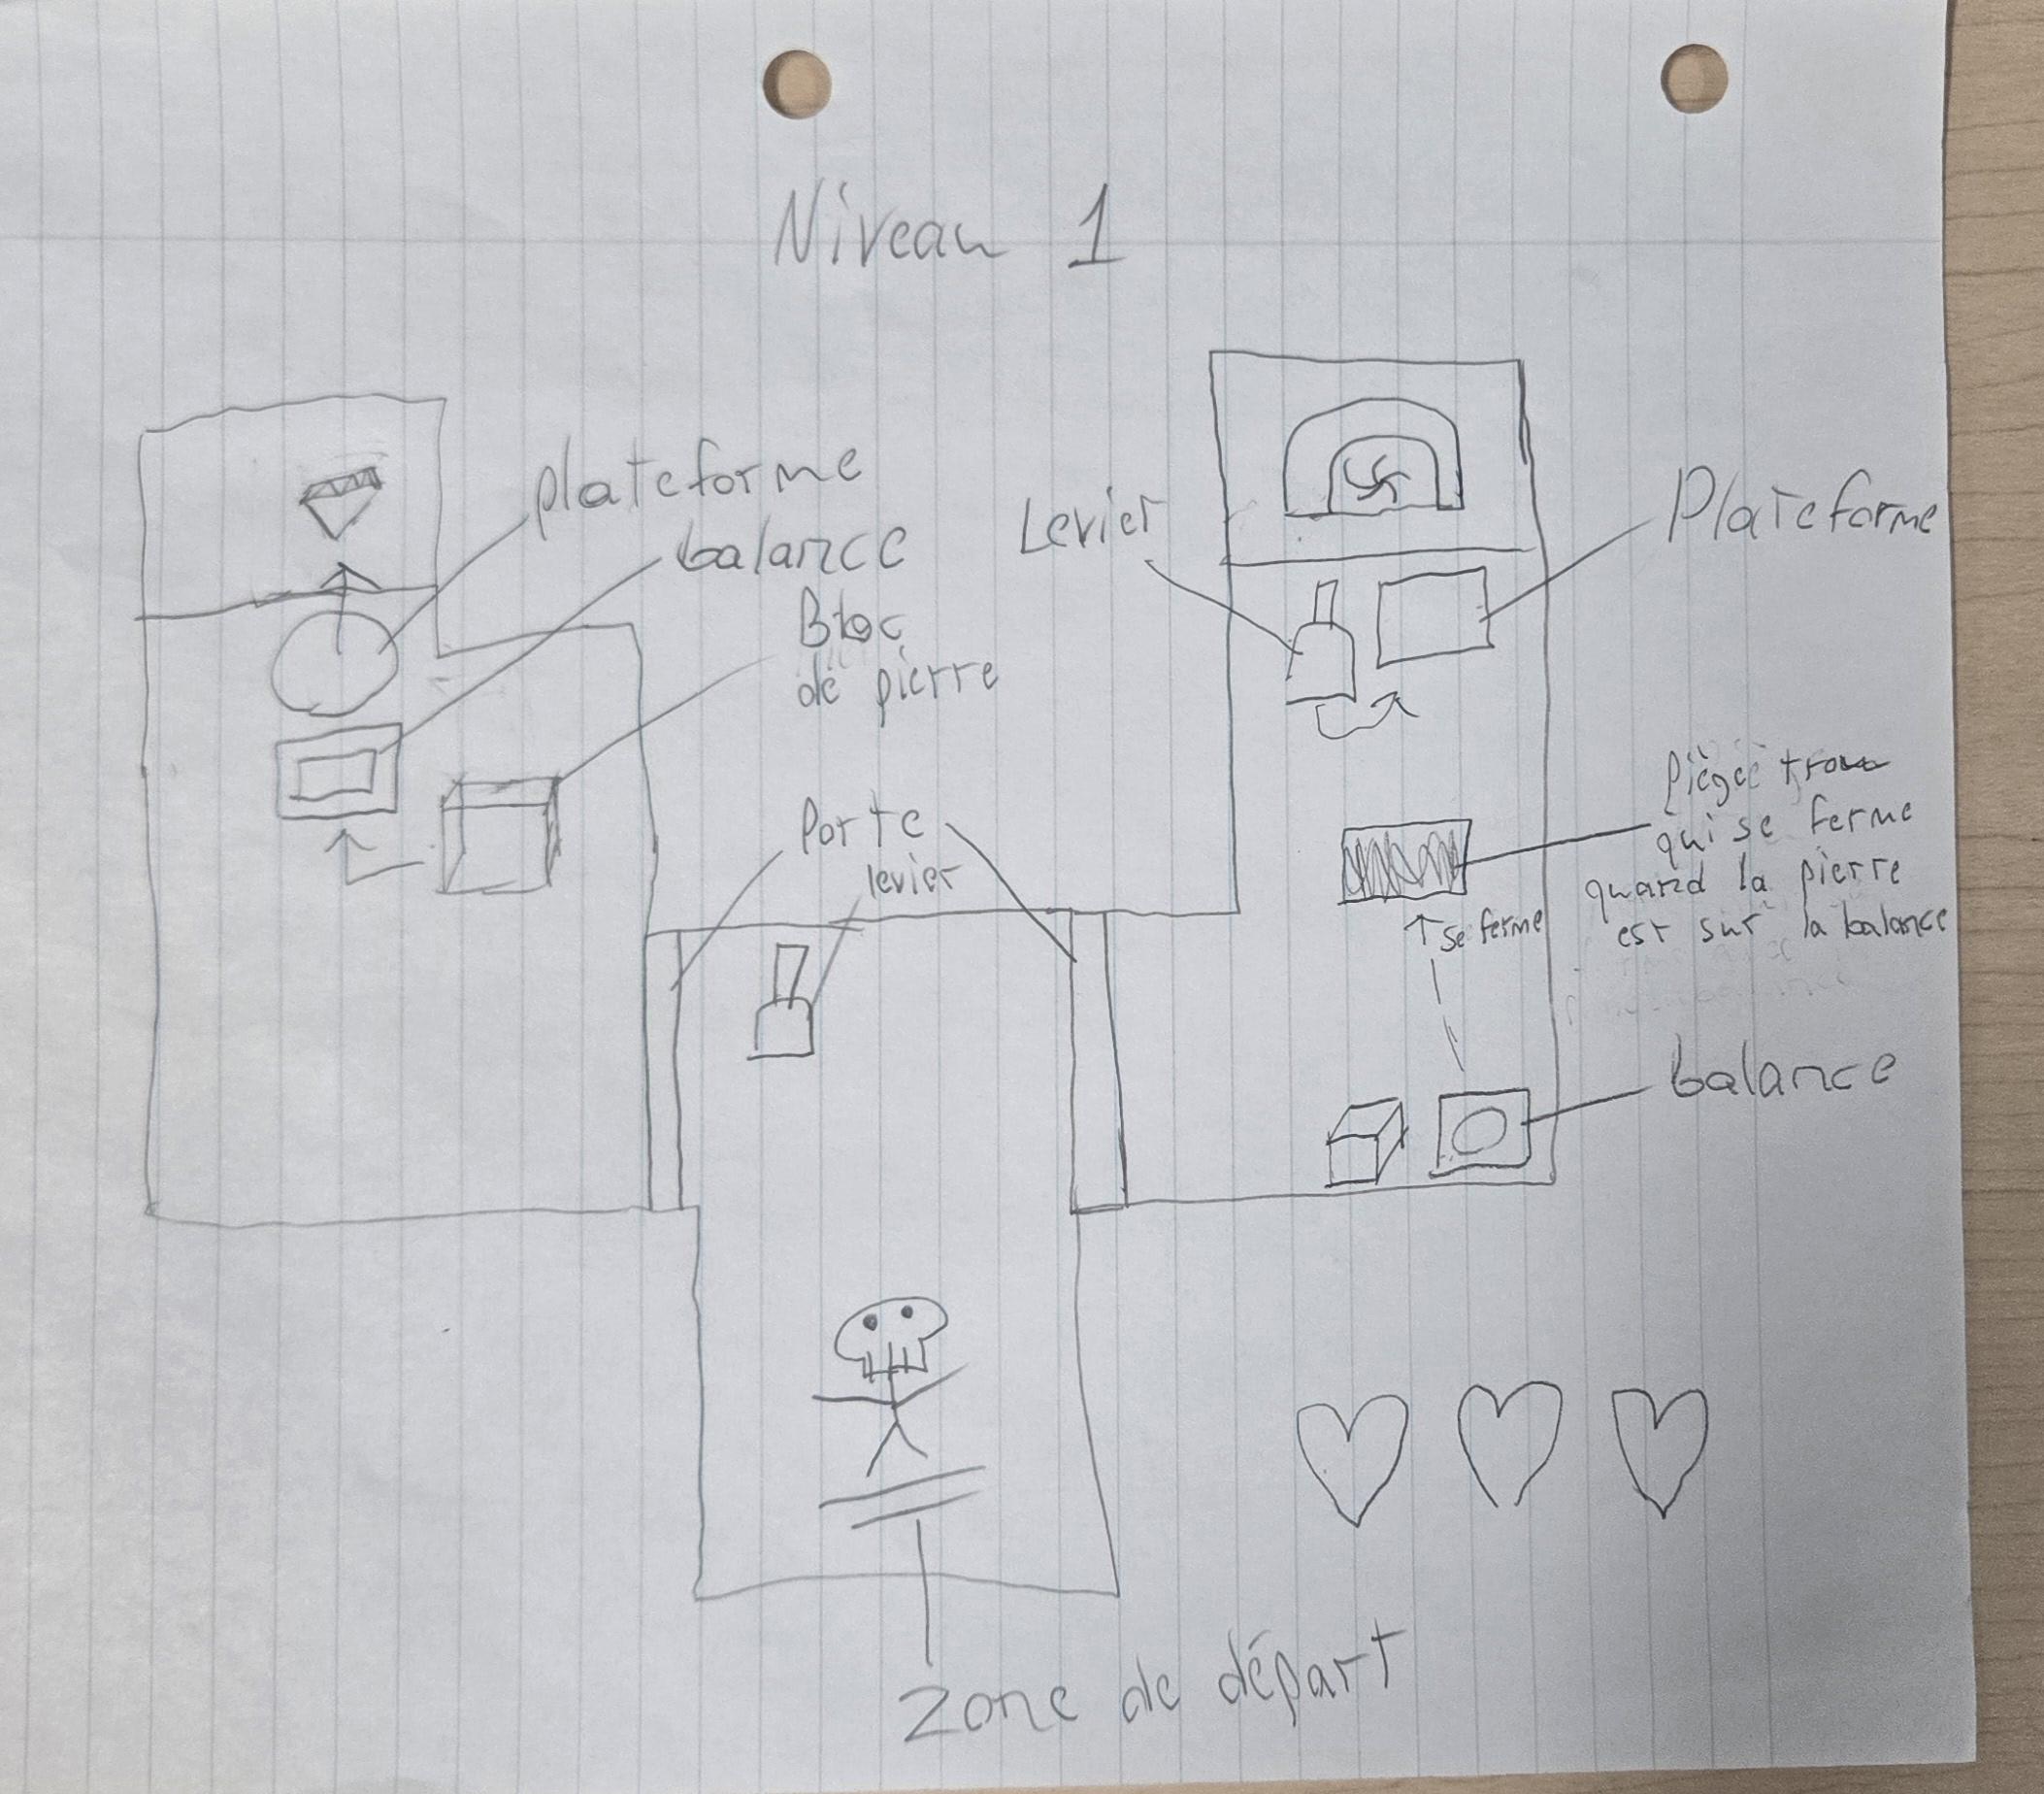 Niveau 1
plateforme
balance
Bloc
de pierre
Levier
Plateforme
Porte
levier
Piège trou
qui se ferme
quand la pierre
est sur la balance
se ferme
balance
zone de départ